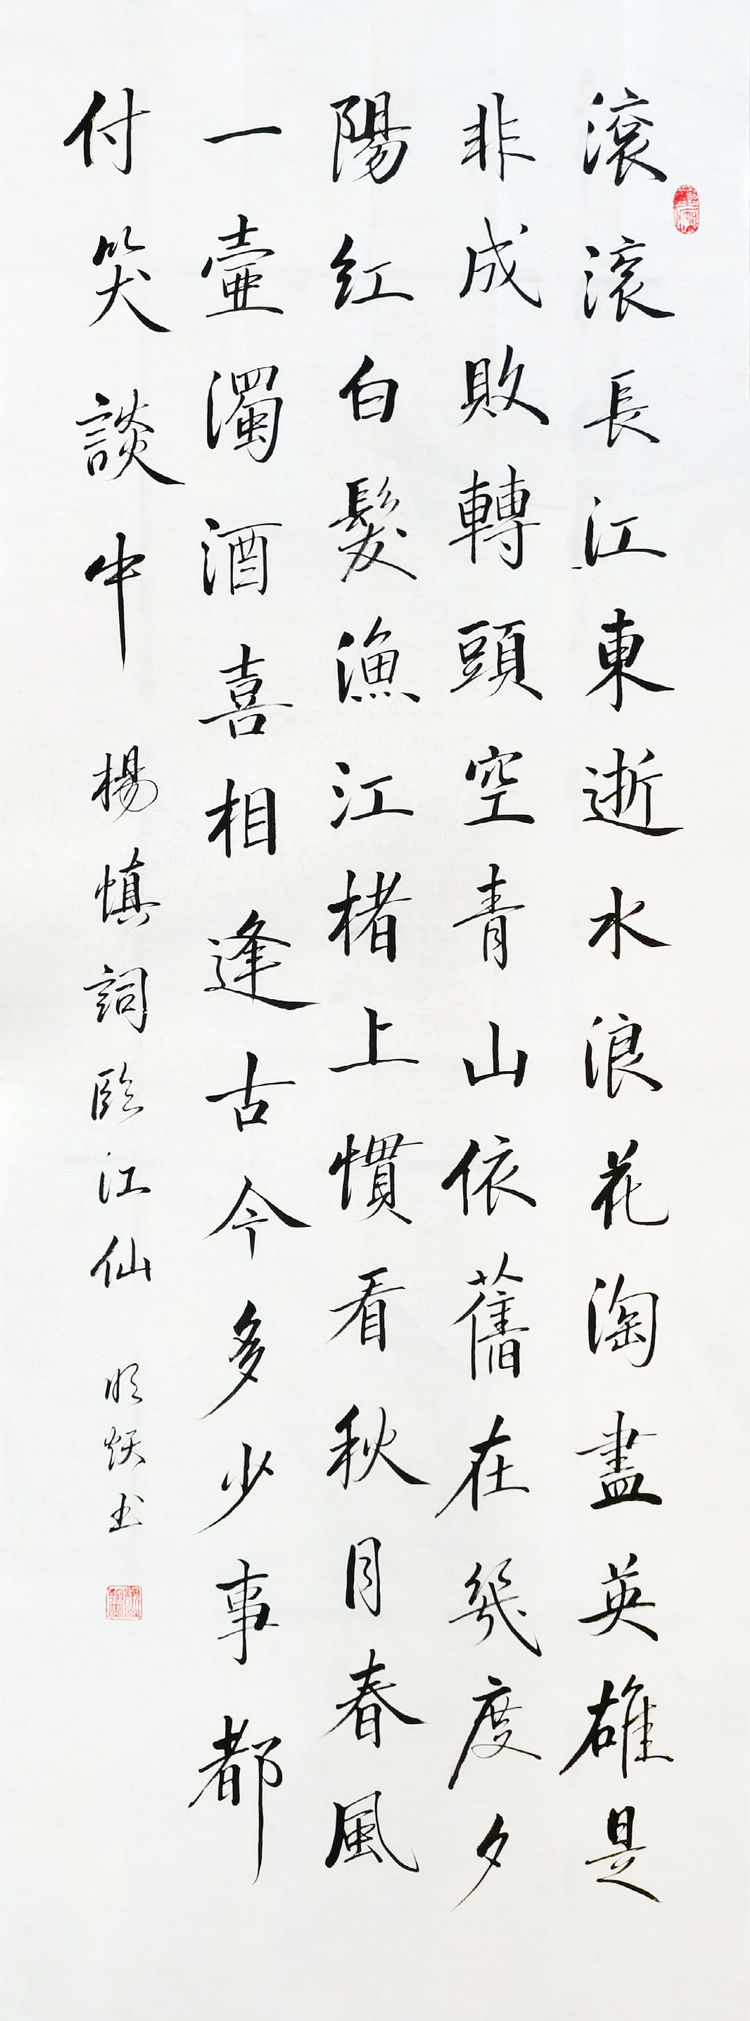 滾滾長江東逝水浪花淘盡英雄是
非成敗轉頭空青山依舊在幾度夕
陽紅白髮漁江楮上慣看秋月春風
一壺濁酒喜相逢古今多少事都
付笑談中 楊慎詞臨江仙 明書